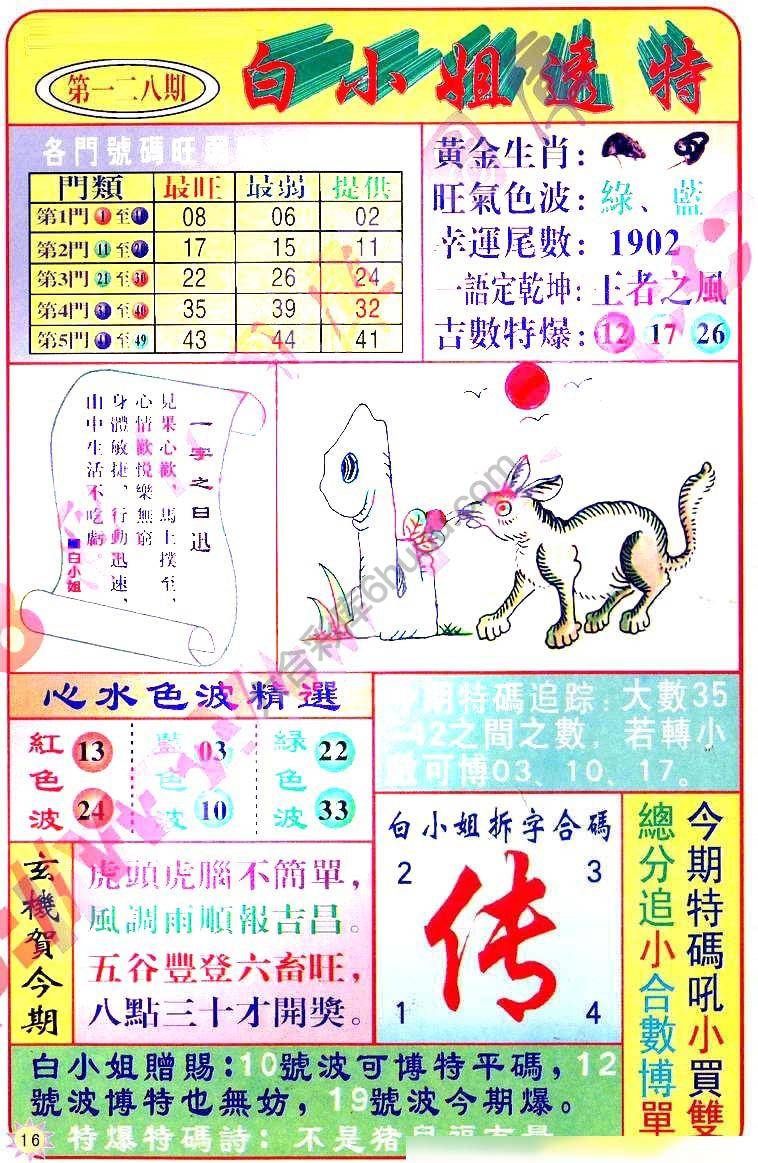 第一二八期
白小姐透特
各門號碼旺
門類 最旺 最弱 提供
第1門 1 至 08 06 02
第2門 11 至 17 15 11
第3門 21 至 30 22 26 24
第4門 至 40 35 39 32
第5門 至 49 43 44 41
黃金生肖:
旺氣色波: 綠、藍
幸運尾數: 1902
一語定乾坤: 王者之風
吉數特爆: 12 17 26
一字之曰迅
見果心歡,馬上撲至,
心情歡悦樂無窮
身體敏捷,行動迅速,
山中生活不吃虧。
白小姐
心水色波精選
紅色波 13 24
藍色波 03 10
綠色波 22 33
期特碼追踪: 大數35
-42之間之數, 若轉小
可博03、10、17。
玄機賀今期
虎頭虎腦不簡單,
風調雨順報吉昌。
五谷豐登六畜旺,
八點三十才開獎。
白小姐拆字合碼
2 3
传
1 4
今期特碼吼小買雙
總分追小合數博單
白小姐贈賜:10號波可博特平碼,12
號波博特也無妨,19號波今期爆。
特爆特碼詩: 不是猪
16
六合彩库6huku.com